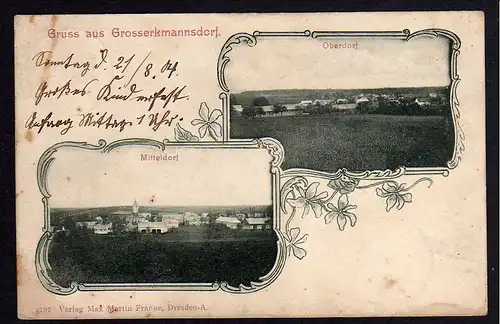 Gruss aus Grosserkmannsdorf.
Oberdorf
Sonntag d. 21/8. 04.
Großes Kinderfest.
Anfang Mittag 1 Uhr.
Mitteldorf
Verlag Max Martin Franke, Dresden-A.